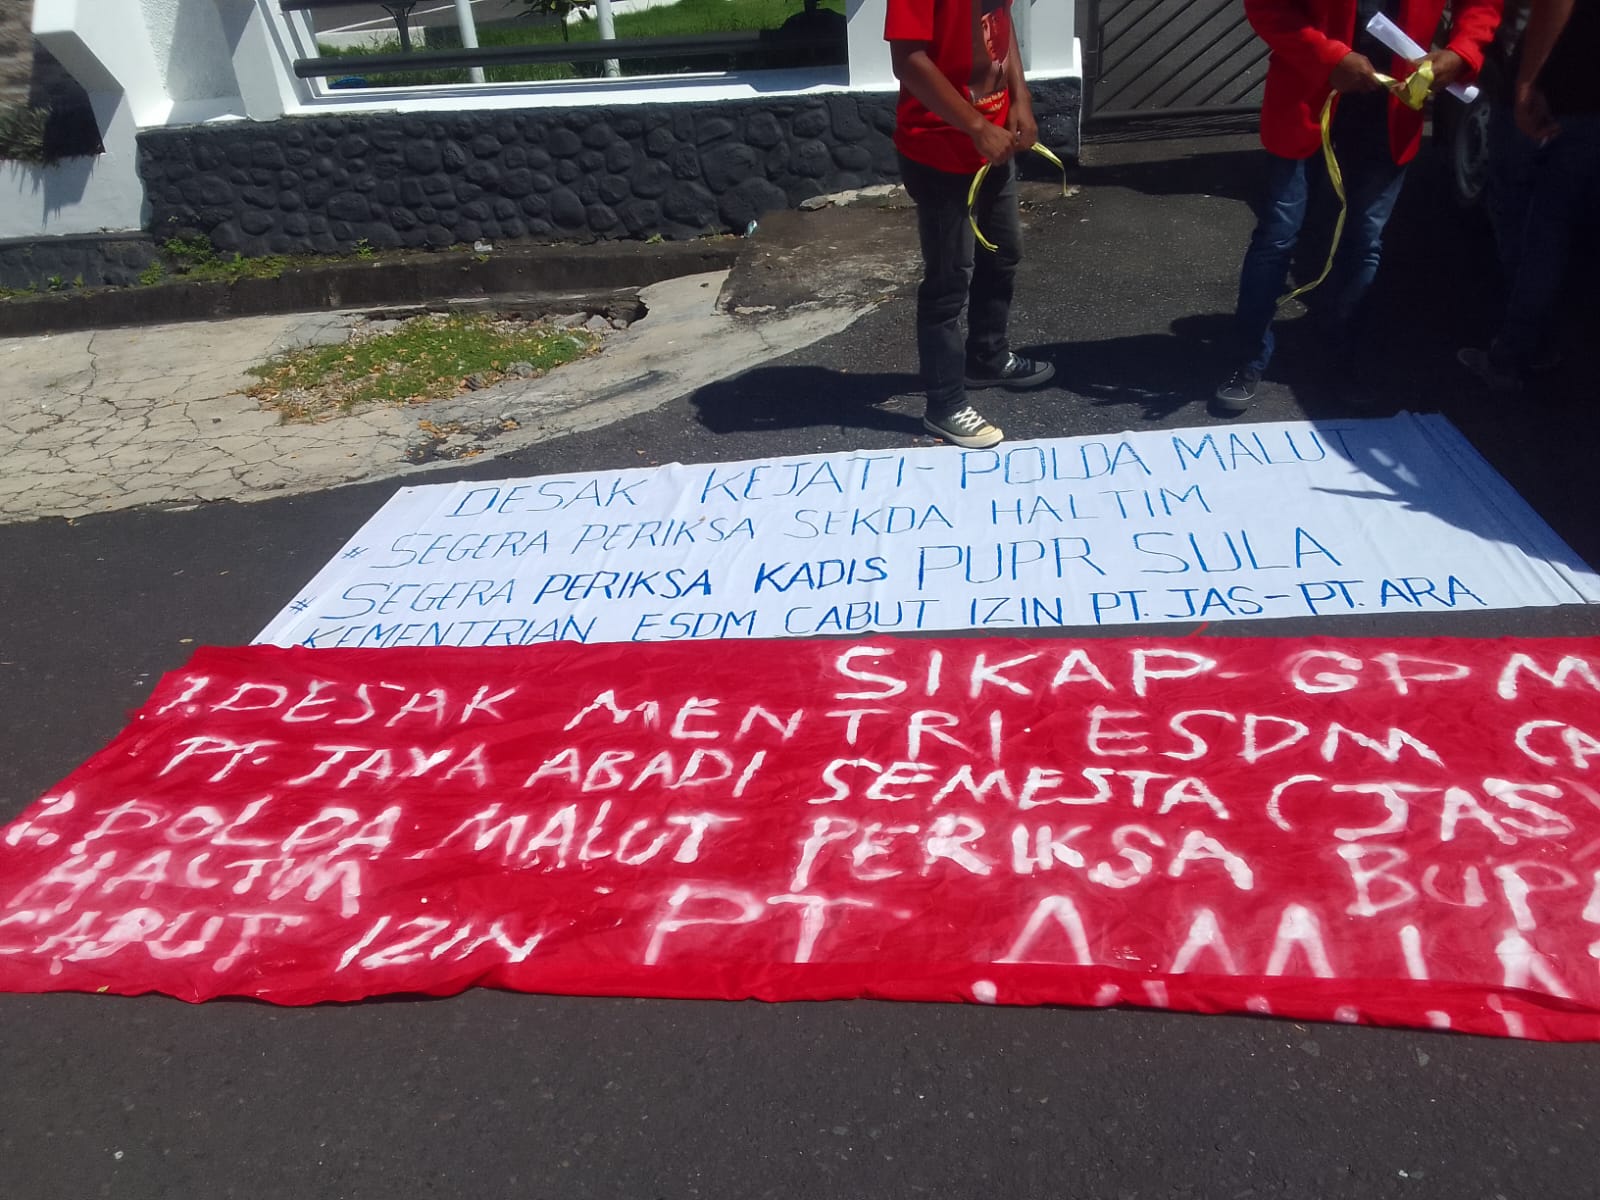 DESAK KEJATI-POLDA MALUT
# SEGERA PERIKSA SEKDA HALTIM
# SEGERA PERIKSA KADIS PUPR SULA
KEMENTRIAN ESDM CABUT IZIN PT. JAS-PT. ARA
SIKAP GPM
1. DESAK MENTRI ESDM CA
PT. JAYA ABADI SEMESTA (JAS)
2. POLDA MALUT PERIKSA BUPA
HALTIM
CABUT IZIN PT